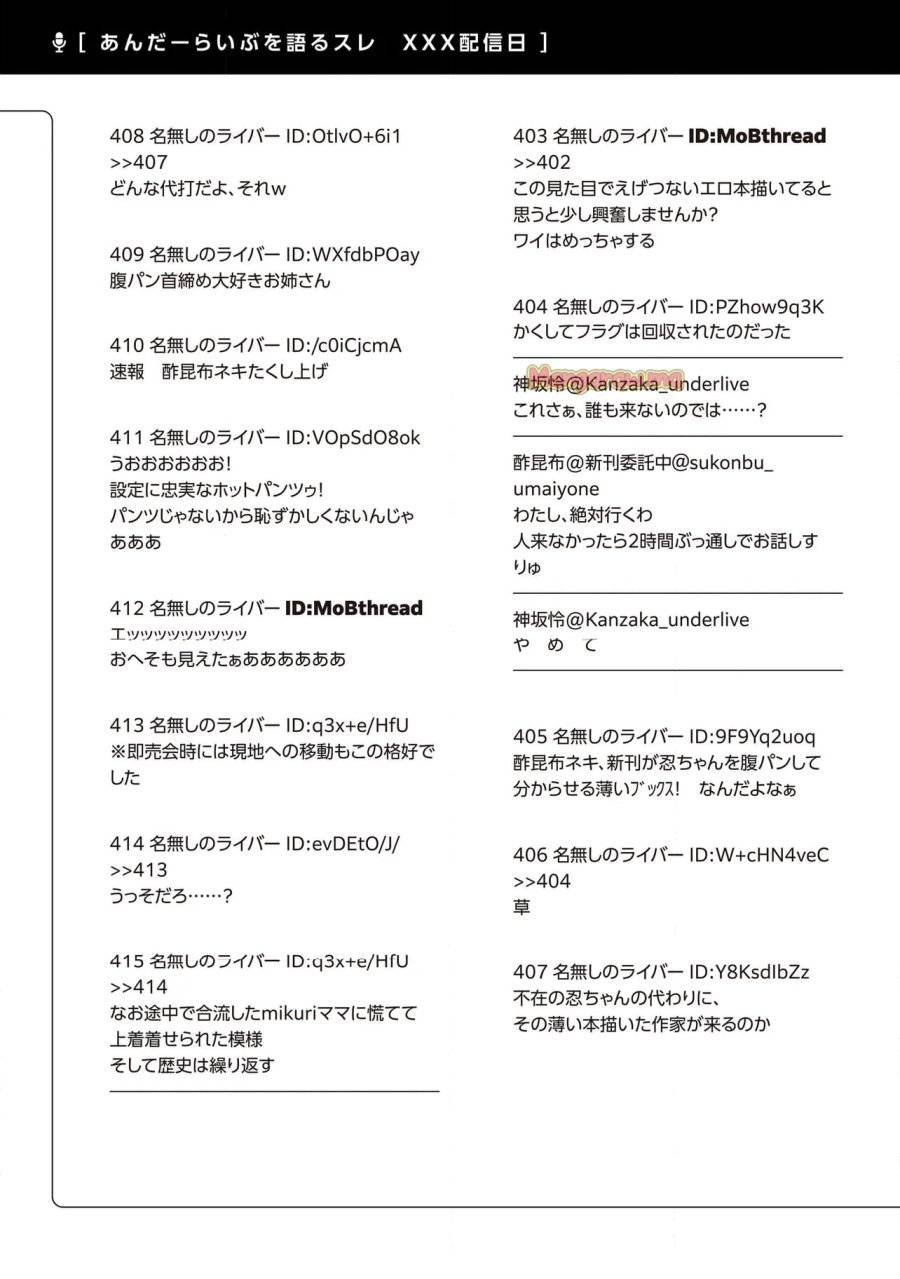 [ あんだーらいぶを語るスレ　XXX配信日 ]
403 名無しのライバー ID:MoBthread
>>402
この見た目でえげつないエロ本描いてると
思うと少し興奮しませんか?
ワイはめっちゃする
404 名無しのライバー ID:PZhow9q3K
かくしてフラグは回収されたのだった
神坂怜@Kanzaka_underlive
これさぁ、誰も来ないのでは……?
酢昆布@新刊委託中@sukonbu_
umaiyone
わたし、絶対行くわ
人来なかったら2時間ぶっ通しでお話しす
りゅ
神坂怜@Kanzaka_underlive
や　め　て
405 名無しのライバー ID:9F9Yq2uoq
酢昆布ネキ、新刊が忍ちゃんを腹パンして
分からせる薄いﾌﾞｯｸｽ!　なんだよなぁ
406 名無しのライバー ID:W+cHN4veC
>>404
草
407 名無しのライバー ID:Y8KsdIbZz
不在の忍ちゃんの代わりに、
その薄い本描いた作家が来るのか
408 名無しのライバー ID:OtlvO+6i1
>>407
どんな代打だよ、それw
409 名無しのライバー ID:WXfdbPOay
腹パン首締め大好きお姉さん
410 名無しのライバー ID:/c0iCjcmA
速報　酢昆布ネキたくし上げ
411 名無しのライバー ID:VOpSdO8ok
うおおおおおお!
設定に忠実なホットパンツゥ!
パンツじゃないから恥ずかしくないんじゃ
あああ
412 名無しのライバー ID:MoBthread
エッッッッッッッッッ
おへそも見えたぁああああああ
413 名無しのライバー ID:q3x+e/HfU
※即売会時には現地への移動もこの格好で
した
414 名無しのライバー ID:evDEtO/J/
>>413
うっそだろ……?
415 名無しのライバー ID:q3x+e/HfU
>>414
なお途中で合流したmikuriママに慌てて
上着着せられた模様
そして歴史は繰り返す